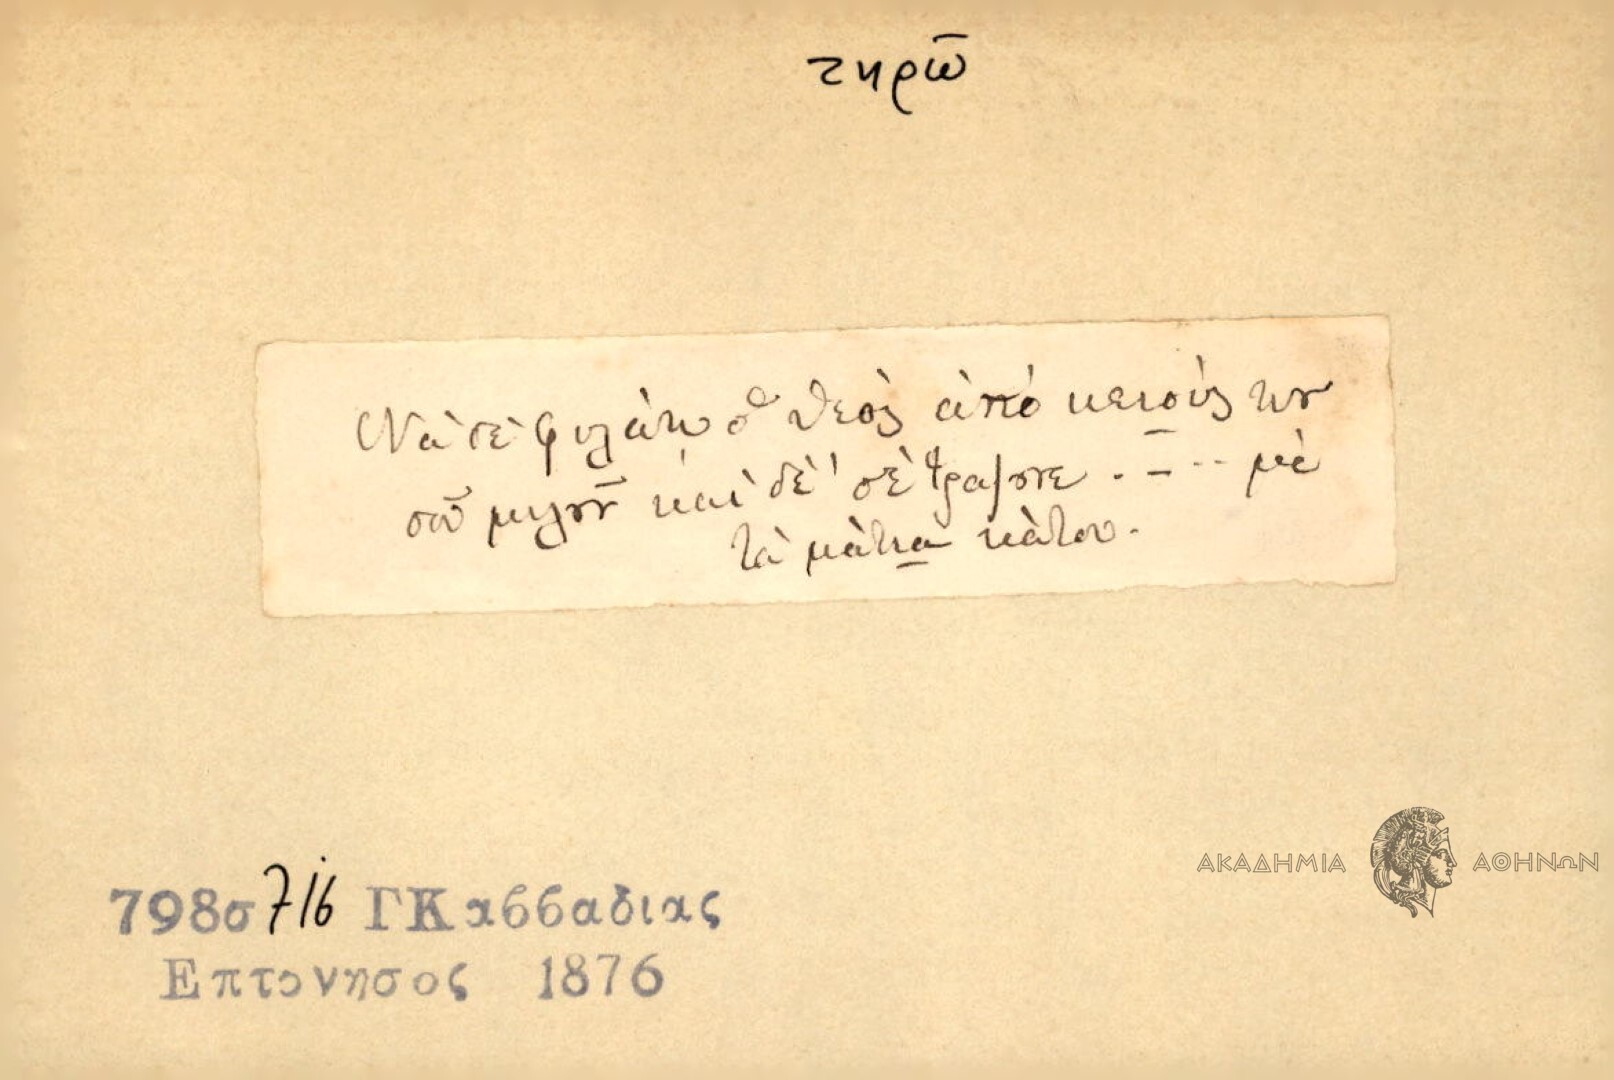 τηρῶ
Νὰ σὲ φυλάῃ ὁ θεὸς ἀπὸ κειοὺς που
σοῦ μιλοῦν καὶ δὲ σὲ τραροῦνε . – .. μὲ
τὰ μάτια κάτου.
798σ 716 ΓΚαββαδιας
Επτονησος 1876
ΑΚΑΔΗΜΙΑ ΑΘΗΝΩΝ